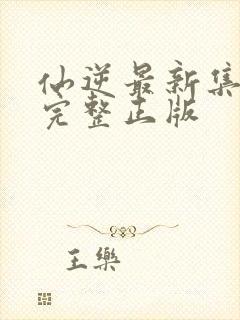 仙逆最新集
完整正版
王樂